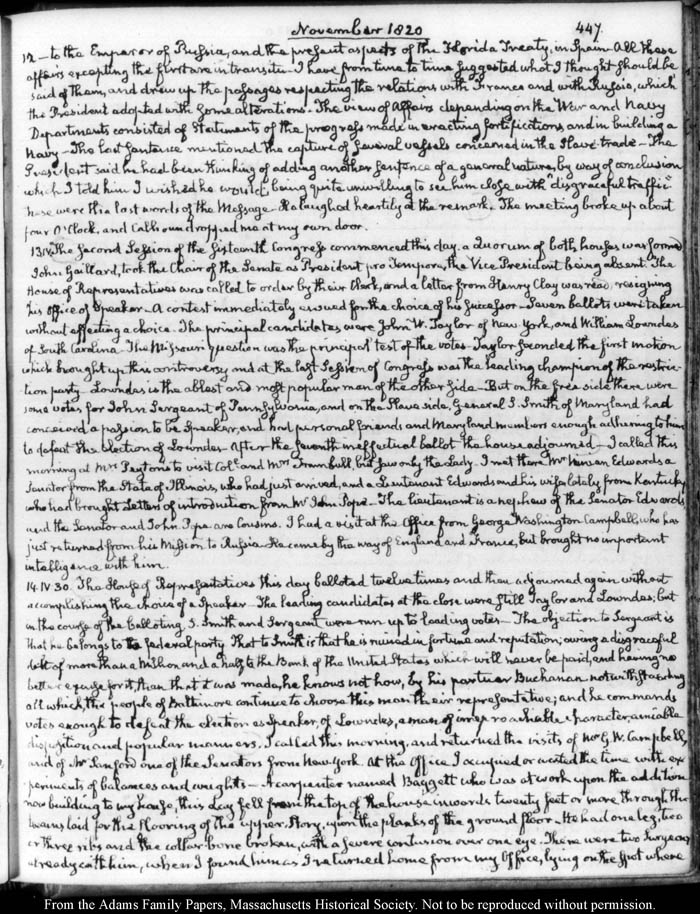 November 1820 447.
12 — to the Emperor of Russia, and the present aspects of the Florida Treaty, in Spain. All these
affairs excepting the first are in transitu — I have from time to time suggested what I thought should be
said of them, and drew up the passages respecting the relations with France and with Russia, which
the President adopted with some alterations. The view of affairs depending on the War and Navy
Departments consisted of Statements of the progress made in erecting fortifications, and in building a
Navy — The last sentence mentioned the capture of several vessels concerned in the Slave-trade — The
President said he had been thinking of adding another sentence of a general nature, by way of conclusion
which I told him I wished he would, being quite unwilling to see him close with "disgraceful traffic"
these were the last words of the Message — He laughed heartily at the remark. The meeting broke up about
four O'Clock, and Calhoun dropped me at my own door.
13. The second Session of the sixteenth Congress commenced this day. a Quorum of both houses was formed
John Gaillard, took the Chair of the Senate as President pro Tempore, the Vice President being absent. The
House of Representatives was called to order by their Clerk, and a letter from Henry Clay was read, resigning
his office of Speaker — A contest immediately ensued for the choice of his Successor — Seven ballots were taken
without effecting a choice. The principal candidates were John W. Taylor of New York, and William Lowndes
of South Carolina — The Missouri question was the principal test of the votes — Taylor seconded the first motion
which brought up this controversy, and at the last Session of Congress was the leading champion of the restric-
tion party — Lowndes is the ablest and most popular man of the other side — But on the free side there were
some votes for John Sergeant of Pennsylvania, and on the Slave side, General S. Smith of Maryland had
conceived a passion to be Speaker, and had personal friends and Maryland members enough adhering to him
to defeat the election of Lowndes — After the seventh ineffectual ballot the house adjourned — I called this
morning at Mrs Peyton's to visit Coll. and Mrs Trumbull, but saw only the Lady. I met there Mr Ninian Edwards a
Senator from the State of Illinois, who had just arrived, and a Lieutenant Edwards and his wife lately from Kentucky
who had brought Letters of introduction from Mr John Pope — The lieutenant is a nephew of the Senator Edwards
and the Senator and John Pope are Cousins. I had a visit at the Office from George Washington Campbell, who has
just returned from his Mission to Russia — He came by the way of England and France, but brought no important
intelligence with him.
14. IV. 30. The House of Representatives this day balloted twelve times and then adjourned again without
accomplishing the choice of a Speaker — The leading candidates at the close were still Taylor and Lowndes; but
in the course of the balloting, S. Smith and Sergeant were run up to leading votes — The objection to Sergeant is
that he belongs to the federal party. That to Smith is that he is ruined in fortune and reputation; owing a disgraceful
debt of more than a million and a half to the Bank of the United States which will never be paid, and having no
better excuse for it, than that it was made, he knows not how, by his partner Buchanan notwithstanding
all which, the people of Baltimore continue to choose this man their representative; and he commands
votes enough to defeat the election as Speaker, of Lowndes, a man of irreproachable character, amiable
disposition and popular manners. I called this morning, and returned the visits of Mr G. W. Campbell,
and of Mr Sanford one of the Senators from New York. At the Office I occupied or wasted the time with ex
periments of balances and weights — A carpenter named Baggett who was at work upon the addition
now building to my house, this day fell from the top of the house inwards twenty feet or more through the
beams laid for the flooring of the upper Story, upon the planks of the ground floor — He had one leg, two
or three ribs and the collar bone broken, with a severe contusion over one eye. There were two Surgeons
already with him, when I found him as I returned home from my Office, lying on the spot where
From the Adams Family Papers, Massachusetts Historical Society. Not to be reproduced without permission.